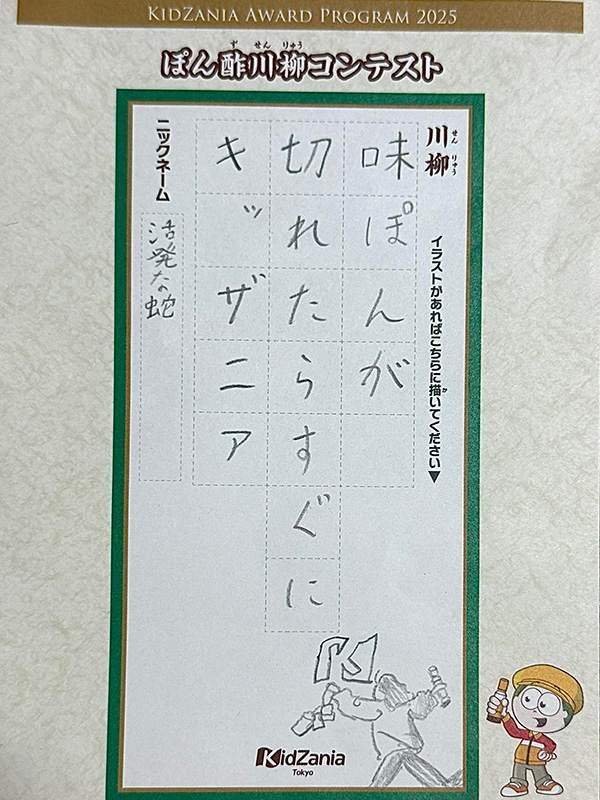 KidZania Award Program 2025
ぽん酢川柳コンテスト
ず せん りゅう
川柳
せん りゅう
イラストがあればこちらに描いてください▼
か
味ぽんが
切れたらすぐに
キッザニア
ニックネーム
活発な蛇
KidZania
Tokyo